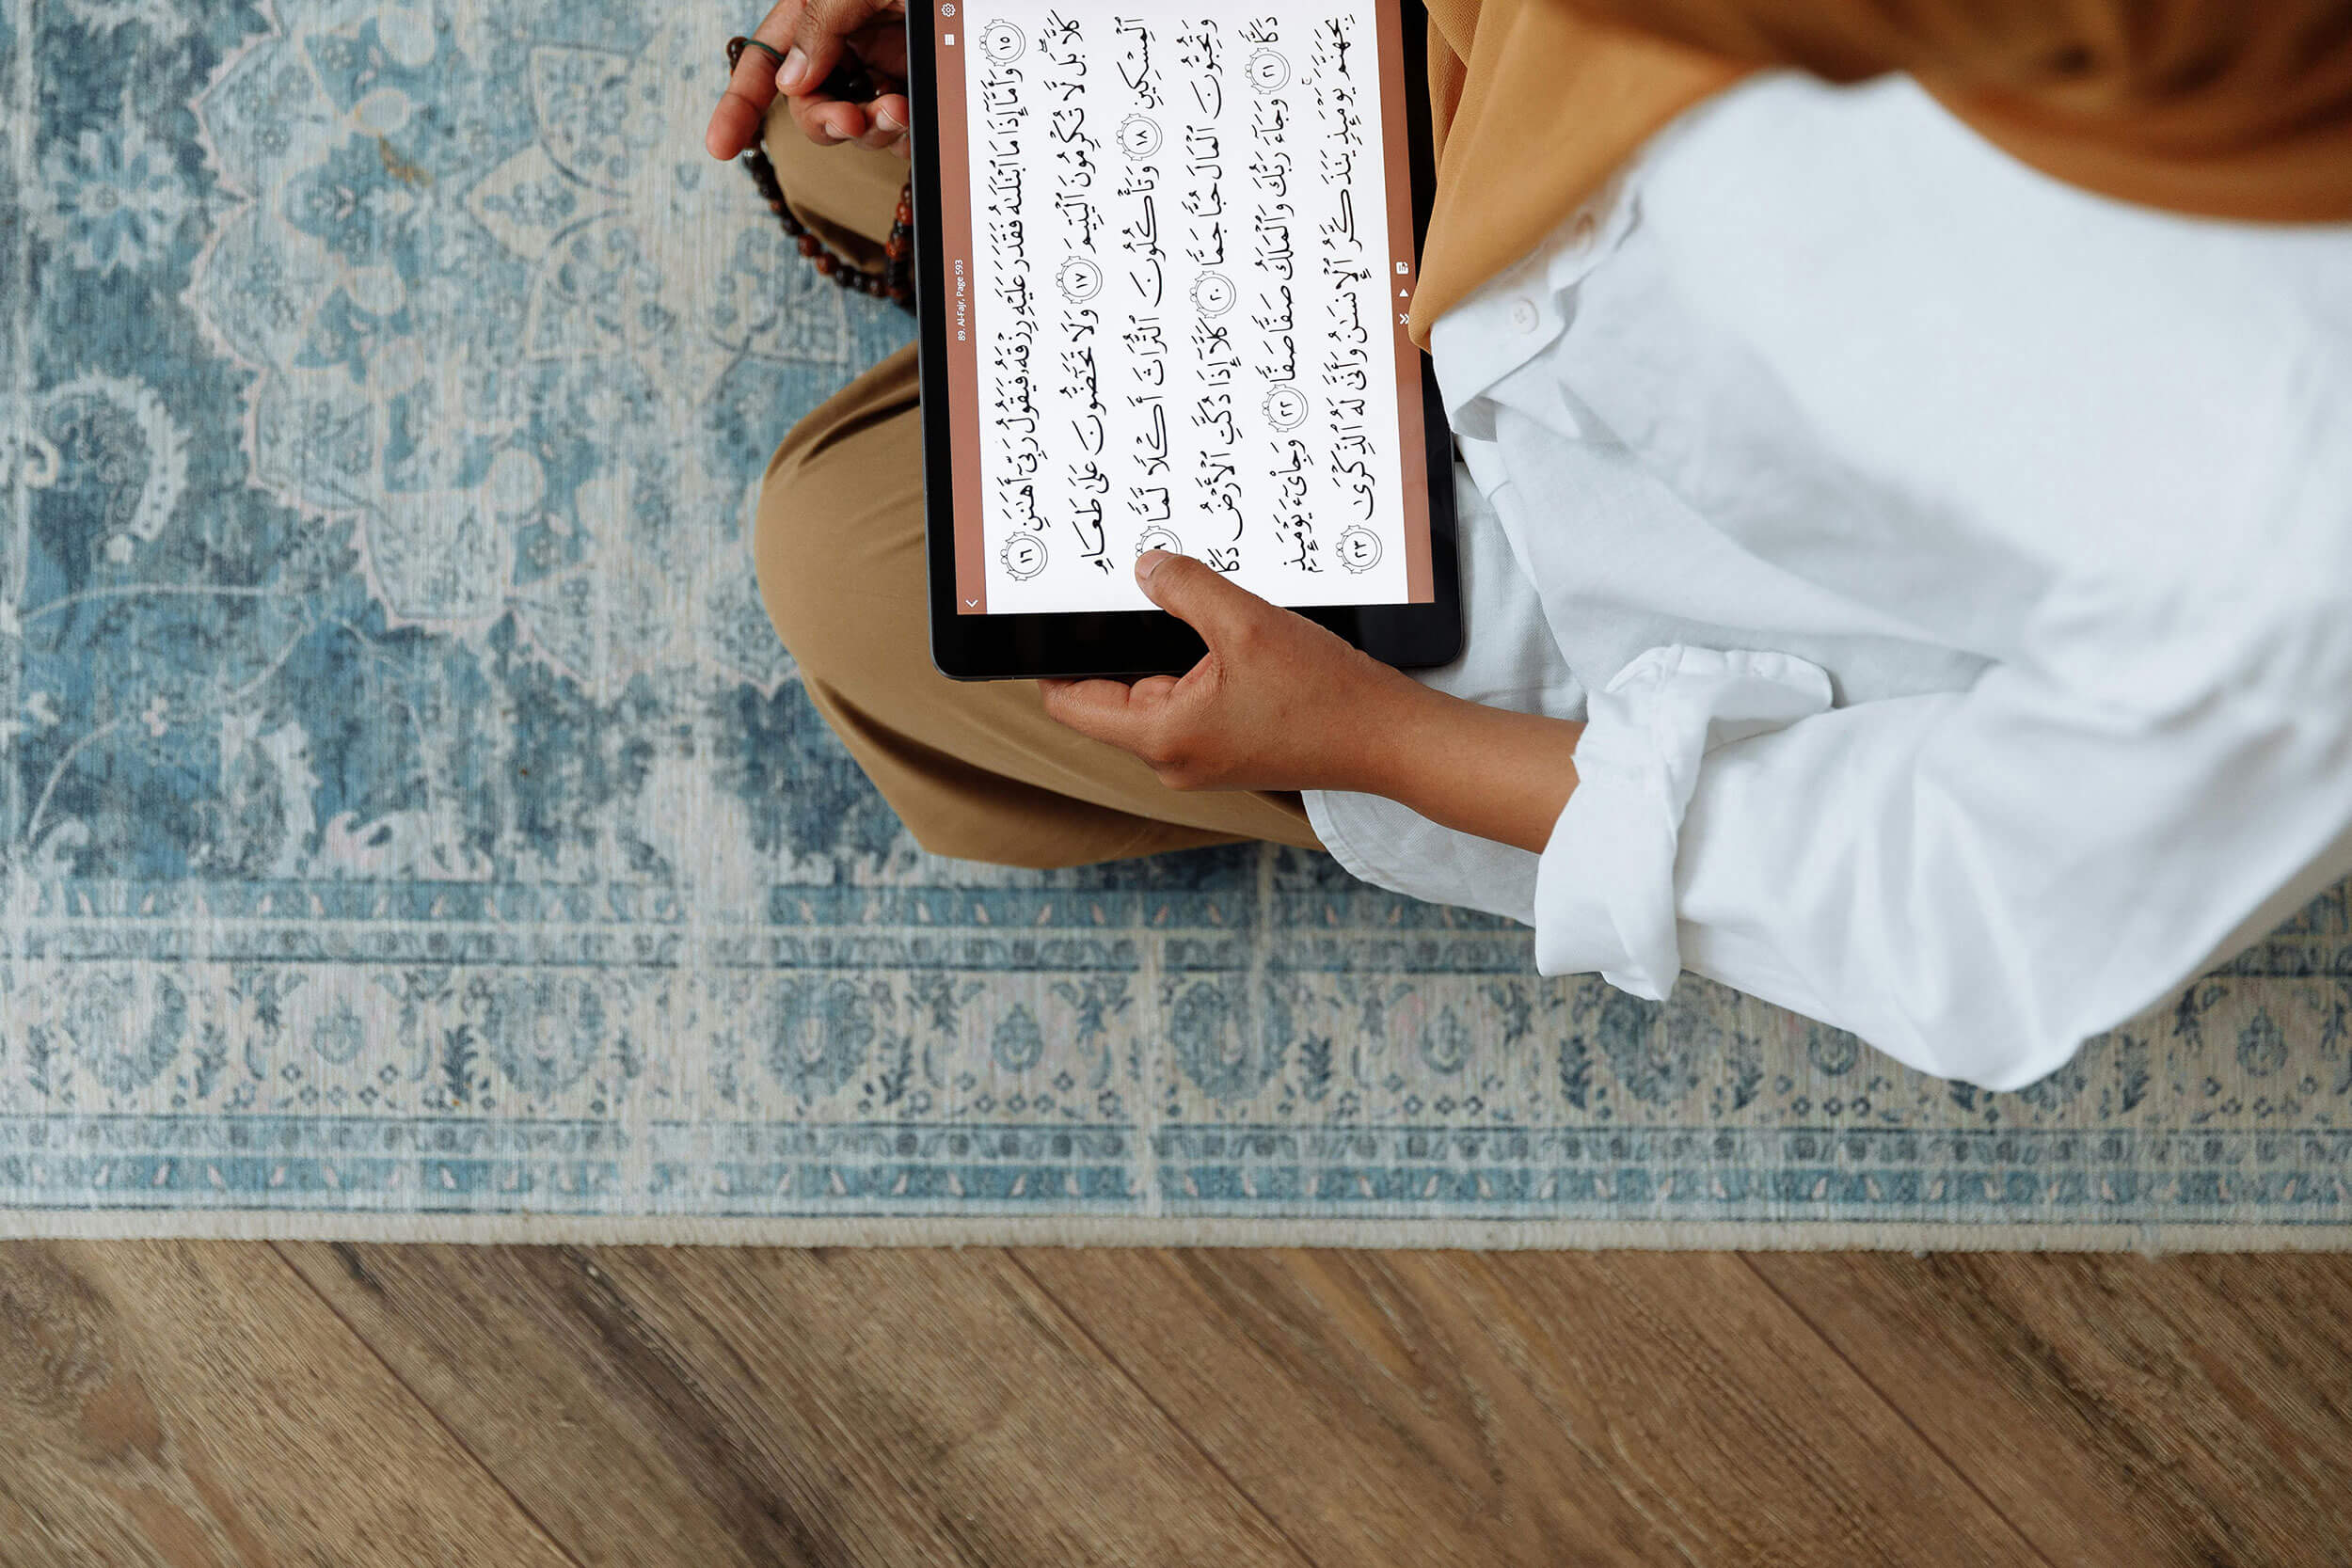 89. Al-Fajr, Page 593
١٥ وَأَمَّآ إِذَا مَا ٱبْتَلَىٰهُ فَقَدَرَ عَلَيْهِ رِزْقَهُۥ فَيَقُولُ رَبِّىٓ أَهَٰنَنِ ١٦
كَلَّا ۖ بَل لَّا تُكْرِمُونَ ٱلْيَتِيمَ ١٧ وَلَا تَحَٰٓضُّونَ عَلَىٰ طَعَامِ
ٱلْمِسْكِينِ ١٨ وَتَأْكُلُونَ ٱلتُّرَاثَ أَكْلًا لَّمًّا ٩
وَتُحِبُّونَ ٱلْمَالَ حُبًّا جَمًّا ٢٠ كَلَّآ إِذَا دُكَّتِ ٱلْأَرْضُ دَكًّا
دَكًّا ٢١ وَجَآءَ رَبُّكَ وَٱلْمَلَكُ صَفًّا صَفًّا ٢٢ وَجِا۟ىٓءَ يَوْمَئِذٍۭ
بِجَهَنَّمَ ۚ يَوْمَئِذٍ يَتَذَكَّرُ ٱلْإِنسَٰنُ وَأَنَّىٰ لَهُ ٱلذِّكْرَىٰ ٢٣